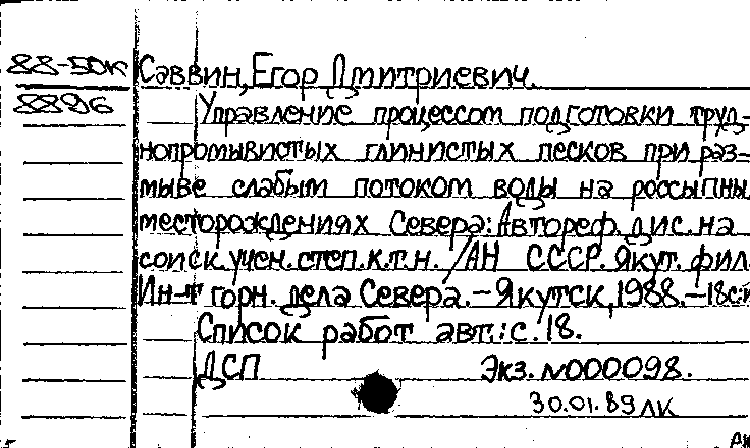 88-50к Саввин, Егор Дмитриевич.
8896 Управление процессом подготовки труд-
нопромывистых глинистых песков при раз-
мыве слабым потоком воды на россыпны
месторождениях Севера: Автореф. дис. на
соиск. учен. степ. к.т.н. /АН СССР. Якут. фил.
Ин-т горн. дела Севера. – Якутск, 1988. – 18с.:
Список работ авт.: с. 18.
ДСП Экз. N000098.
30.01.89 ЛК